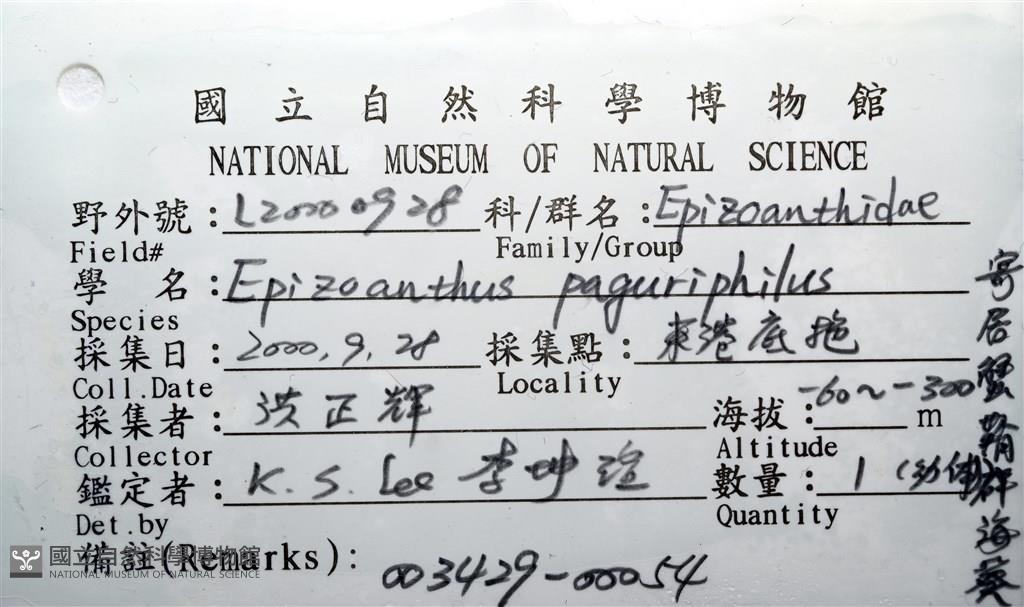 國立自然科學博物館
NATIONAL MUSEUM OF NATURAL SCIENCE
野外號：L20000928 科/群名：Epizoanthidae
Field# Family/Group
學 名：Epizoanthus paguriphilus
Species
採集日：2000,9,28 採集點：東港底拖
Coll.Date Locality
採集者：洪正輝 海拔：-60~-300 m
Collector Altitude
鑑定者：K.S. Lee 李坤瑄 數量：1
Det.by Quantity
備註(Remarks)：003429-00054
寄居蟹 群海葵
國立自然科學博物館
NATIONAL MUSEUM OF NATURAL SCIENCE